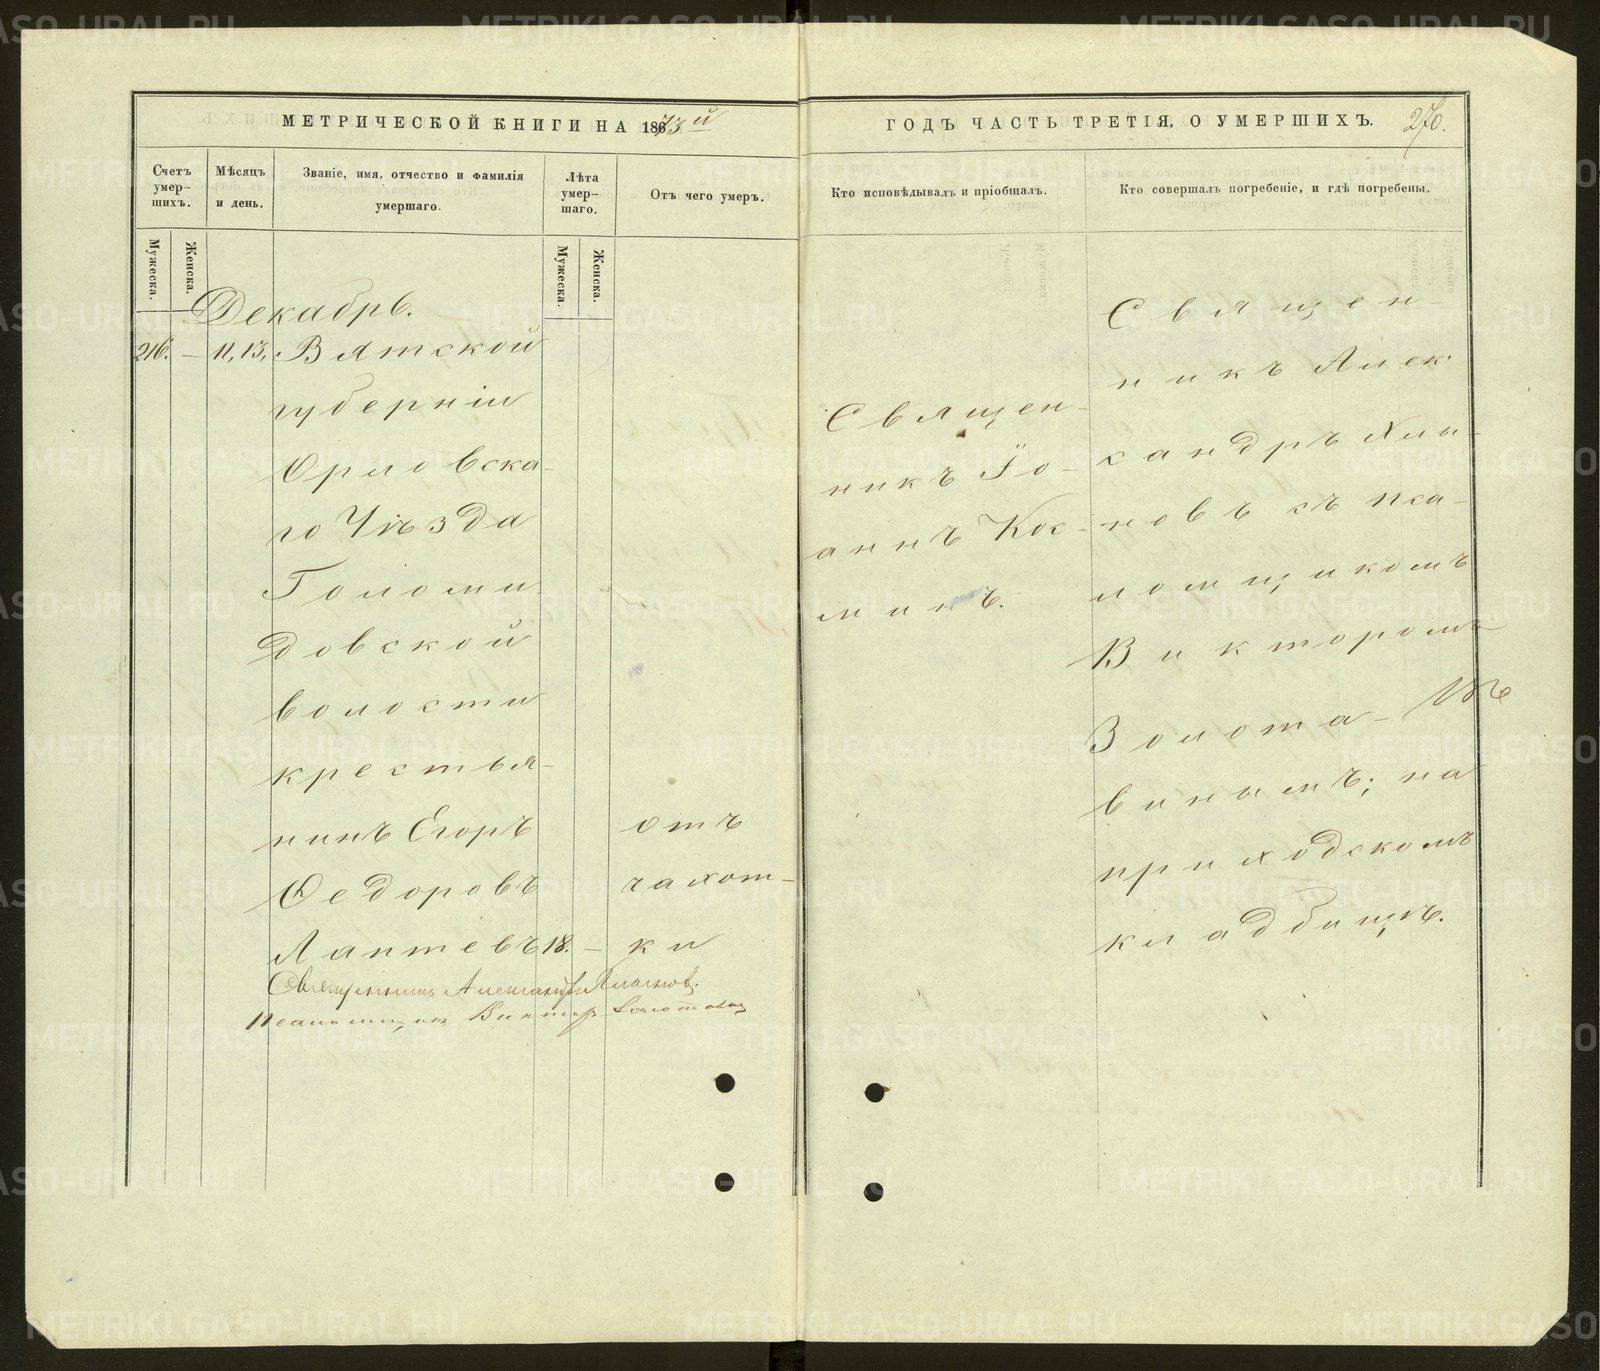 МЕТРИЧЕСКОЙ КНИГИ НА 1873й
ГОДЪ ЧАСТЬ ТРЕТІЯ, О УМЕРШИХЪ.
270.
Счетъ умер-шихъ.
Мужеска.
Женска.
Мѣсяцъ и день.
Званіе, имя, отчество и фамилія
умершаго.
Лѣта умер-шаго.
Мужеска.
Женска.
Отъ чего умеръ.
Кто исповѣдывалъ и пріобщалъ.
Кто совершалъ погребеніе, и гдѣ погребены.
Декабрь.
216. — 11, 13, Вятской
губерніи
Орловска-
го Уѣзда
Голоми-
довской
волости
крестья-
нинъ Егоръ
Ѳедоровъ
Лаптевъ 18. —
отъ
чахот-
ки
Священ-
никъ Іо-
аннъ Кос-
минъ.
Священ-
никъ Алек-
сандръ Хлы-
новъ съ пса-
ломщикомъ
Викторомъ
Золота-
винымъ; на
приходскомъ
кладбищѣ.
Священникъ Александръ Хлыновъ.
Псаломщикъ Викторъ
METRIKI.GASO-URAL.RU